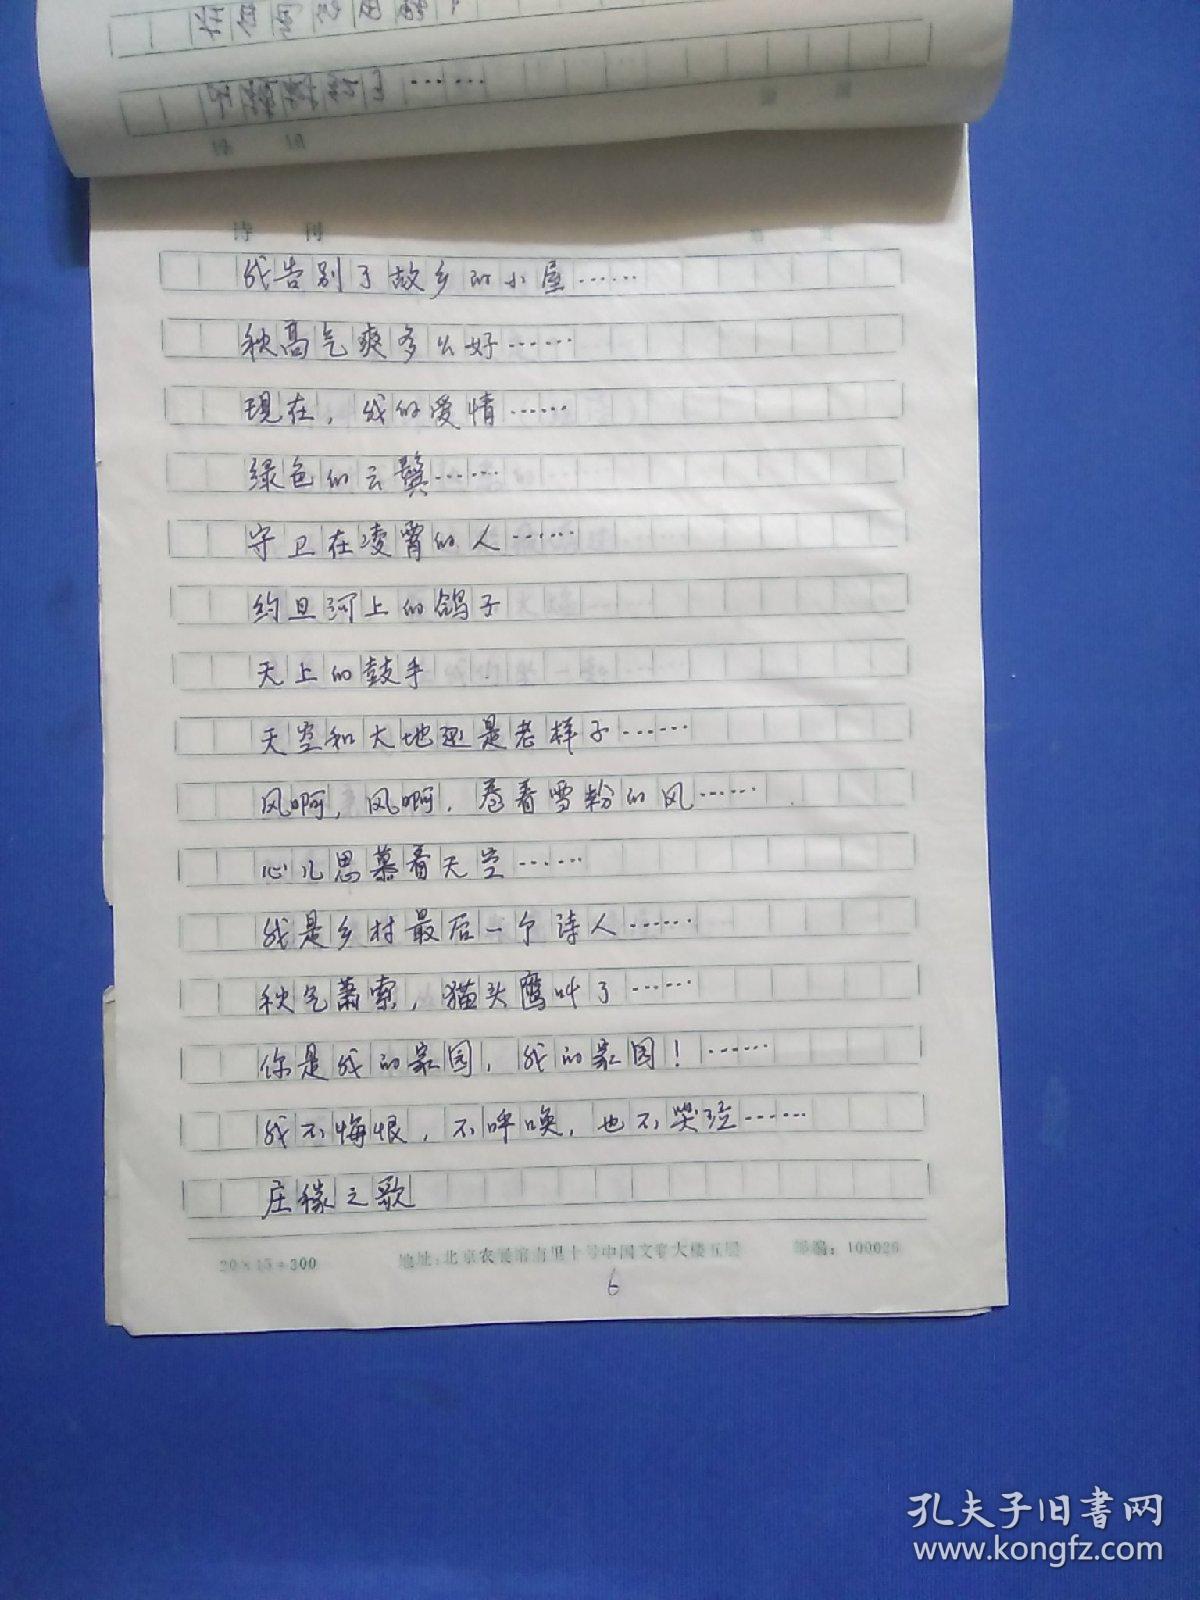 诗 刊
我告别了故乡的小屋……
秋高气爽多么好……
现在，我的爱情……
绿色的云鬓……
守卫在凌霄的人……
约旦河上的鸽子
天上的鼓手
天空和大地还是老样子……
风啊，风啊，卷着雪粉的风……
心儿思慕着天空……
我是乡村最后一个诗人……
秋气萧索，猫头鹰叫了……
你是我的家园，我的家园！……
我不悔恨，不呼唤，也不哭泣……
庄稼之歌
20×15=300
地址：北京农展馆南里十号中国文联大楼五层
邮编：100026
6
孔夫子旧书网
www.kongfz.com